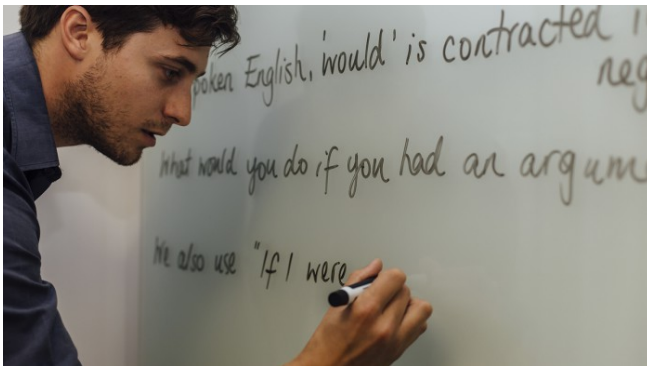 poken English, 'would' is contracted i
neg
What would you do if you had an argume
We also use "If I were